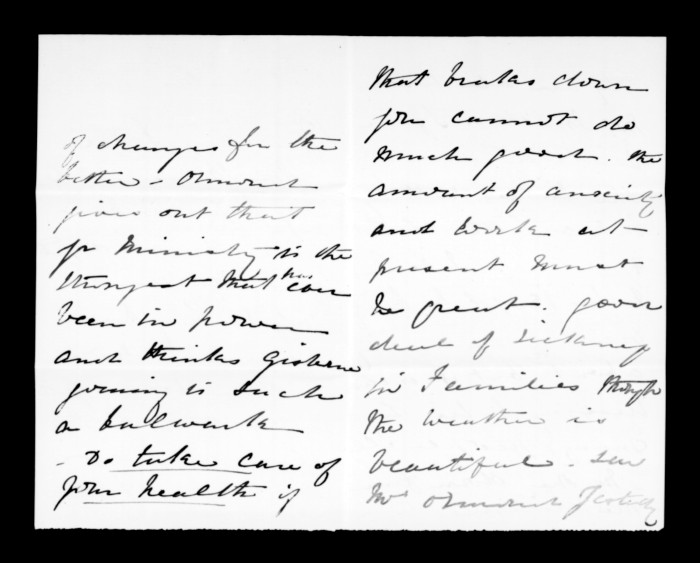 of changes for the
better - Ormond
gives out that
yr Ministry is the
strongest that has ever
been in power
and thinks Gisborne
joining is such
a bulwark
- Do take care of
your health if
that breaks down
you cannot do
much good. The
amount of anxiety
and work at
present must
be great. Good
deal of sickness
in Families though
the weather is
beautiful - saw
Mr Ormond